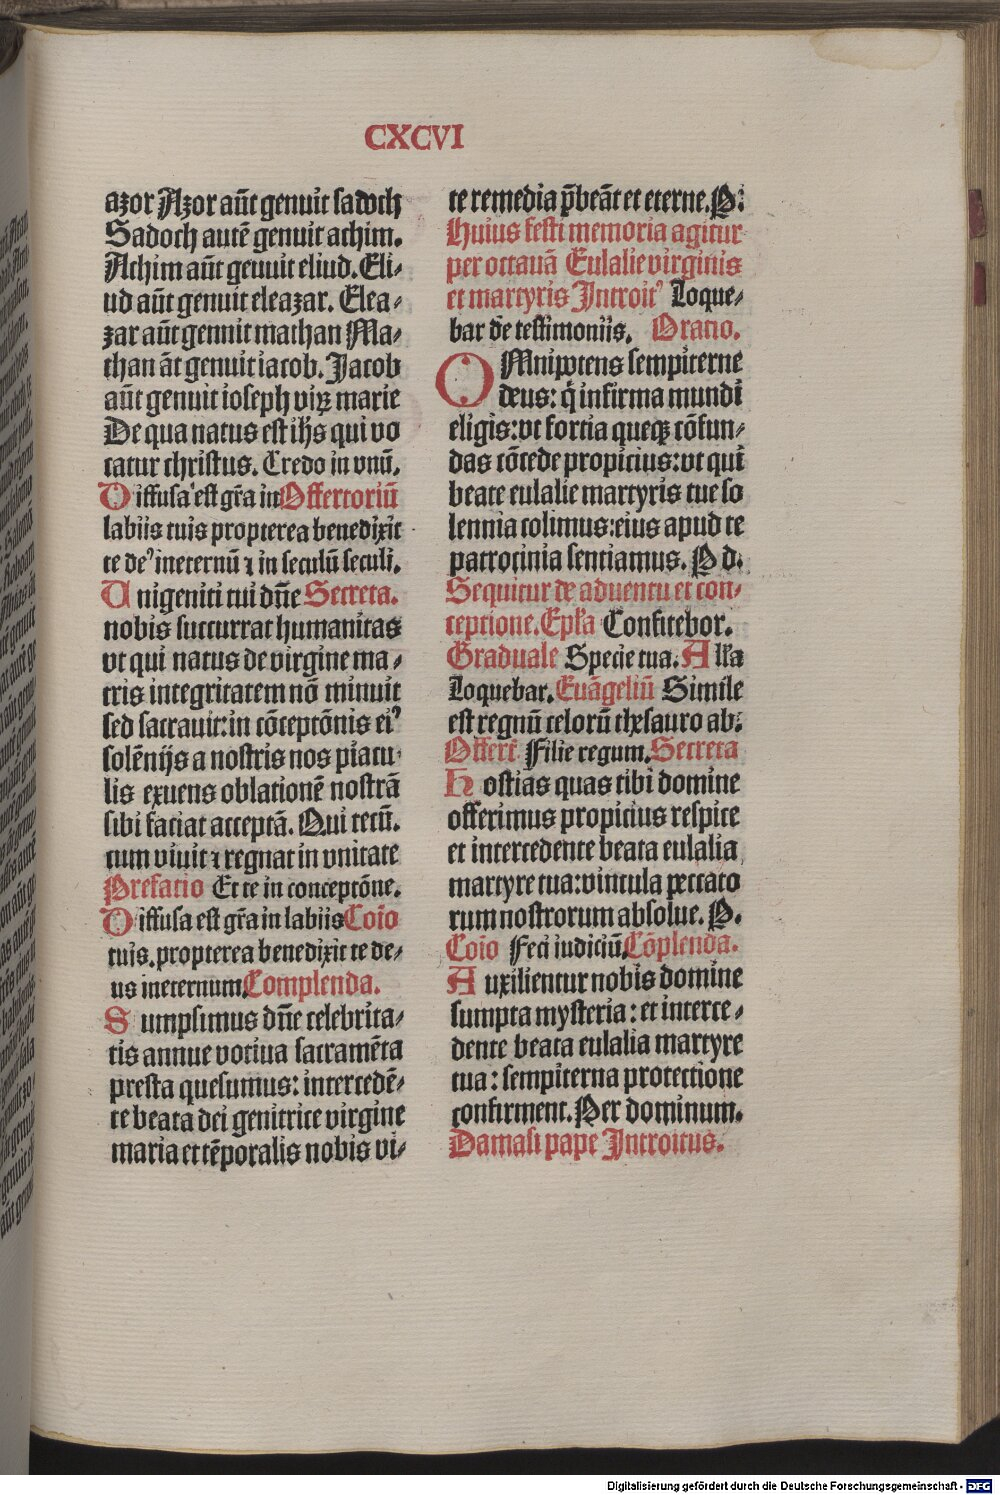 CXCVI
azor Azor aūt genuit sadoch
Sadoch autē genuit achim.
Achim aūt genuit eliud. Eli⸗
ud aūt genuit eleazar. Elea⸗
zar aūt gennit mathan Ma⸗
than āt genuit iacob. Jacob
aūt genuit ioseph viꝝ marie
De qua natus est ihs̄ qui vo
catur christus. Credo in vnū.
Diffusa est gr̄a in Offertoriū
labiis tuis propterea benedixit
te deꝰ ineternū ⁊ in seculū seculi.
Vnigeniti tui dn̄e Secreta.
nobis succurrat humanitas
vt qui natus de virgine ma⸗
tris integritatem nō minuit
sed sacrauit: in cōceptōnis eiꝰ
solēnijs a nostris nos piacu⸗
lis exuens oblationē nostrā
sibi faciat acceptā. Qui tecū.
cum viuit ⁊ regnat in vnitate
Prefatio Et te in conceptōne.
Diffusa est gr̄a in labiis Coīo
tuis. propterea benedixit te de⸗
us ineternum. Complenda.
Sumpsimus dn̄e celebrita⸗
tis annue votiua sacramēta
presta quesumus: intercedē⸗
te beata dei genitrice virgine
maria et tēporalis nobis vi⸗
te remedia p̄beāt et eterne. P:
Huius festi memoria agitur
per octauā Eulalie virginis
et martyris Introitꝰ Loque⸗
bar de testimoniis. Oratio.
OMnipotens sempiterne
deus: q̄ infirma mundi
eligis: vt fortia queqꝫ cōfun⸗
das cōcede propicius: vt qui
beate eulalie martyris tue so
lennia colimus: eius apud te
patrocinia sentiamus. P d.
Sequitur de aduentu et con⸗
ceptione. Epl̄a Confitebor.
Graduale Specie tua. All̄a
Loquebar. Euāgeliū Simile
est regnū celorū thesauro ab:
Offert̄ Filie regum. Secreta
Hostias quas tibi domine
offerimus propicius respice
et intercedente beata eulalia
martyre tua: vincula peccato
rum nostrorum absolue. P.
Coīo Feci iudiciū. Cōplenda.
Auxilientur nobis domine
sumpta mysteria: et interce⸗
dente beata eulalia martyre
tua: sempiterna protectione
confirment. Per dominum.
Damasi pape Introitus.
Digitalisierung gefördert durch die Deutsche Forschungsgemeinschaft - DFG